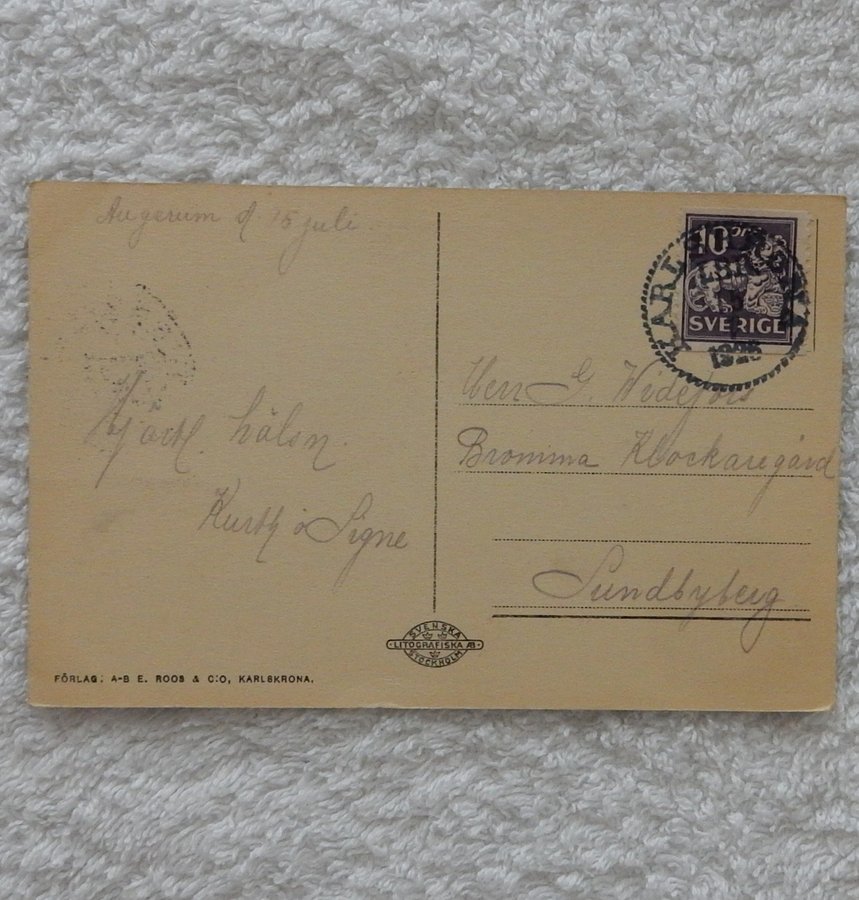 Augerum d. 15 juli
Hjärtl. hälsn.
Kurth o Signe
FÖRLAG: A-B E. ROOS & C:O, KARLSKRONA.
SVENSKA
LITOGRAFISKA AB
STOCKHOLM
10
SVERIGE
KARLSKRONA
1926
Herr G. Wedefors
Bromma Klockaregård
Sundbyberg